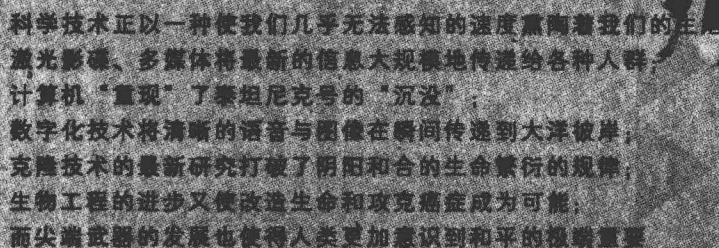 科学技术正以一种使我们几乎无法感知的速度熏陶着我们的生
激光影碟、多媒体将最新的信息大规模地传递给各种人群;
计算机“重现”了泰坦尼克号的“沉没”;
数字化技术将清晰的语音与图像在瞬间传递到大洋彼岸;
克隆技术的最新研究打破了阴阳和合的生命繁衍的规律;
生物工程的进步又使改造生命和攻克癌症成为可能;
而尖端武器的发展也使得人类更加意识到和平的极端重要